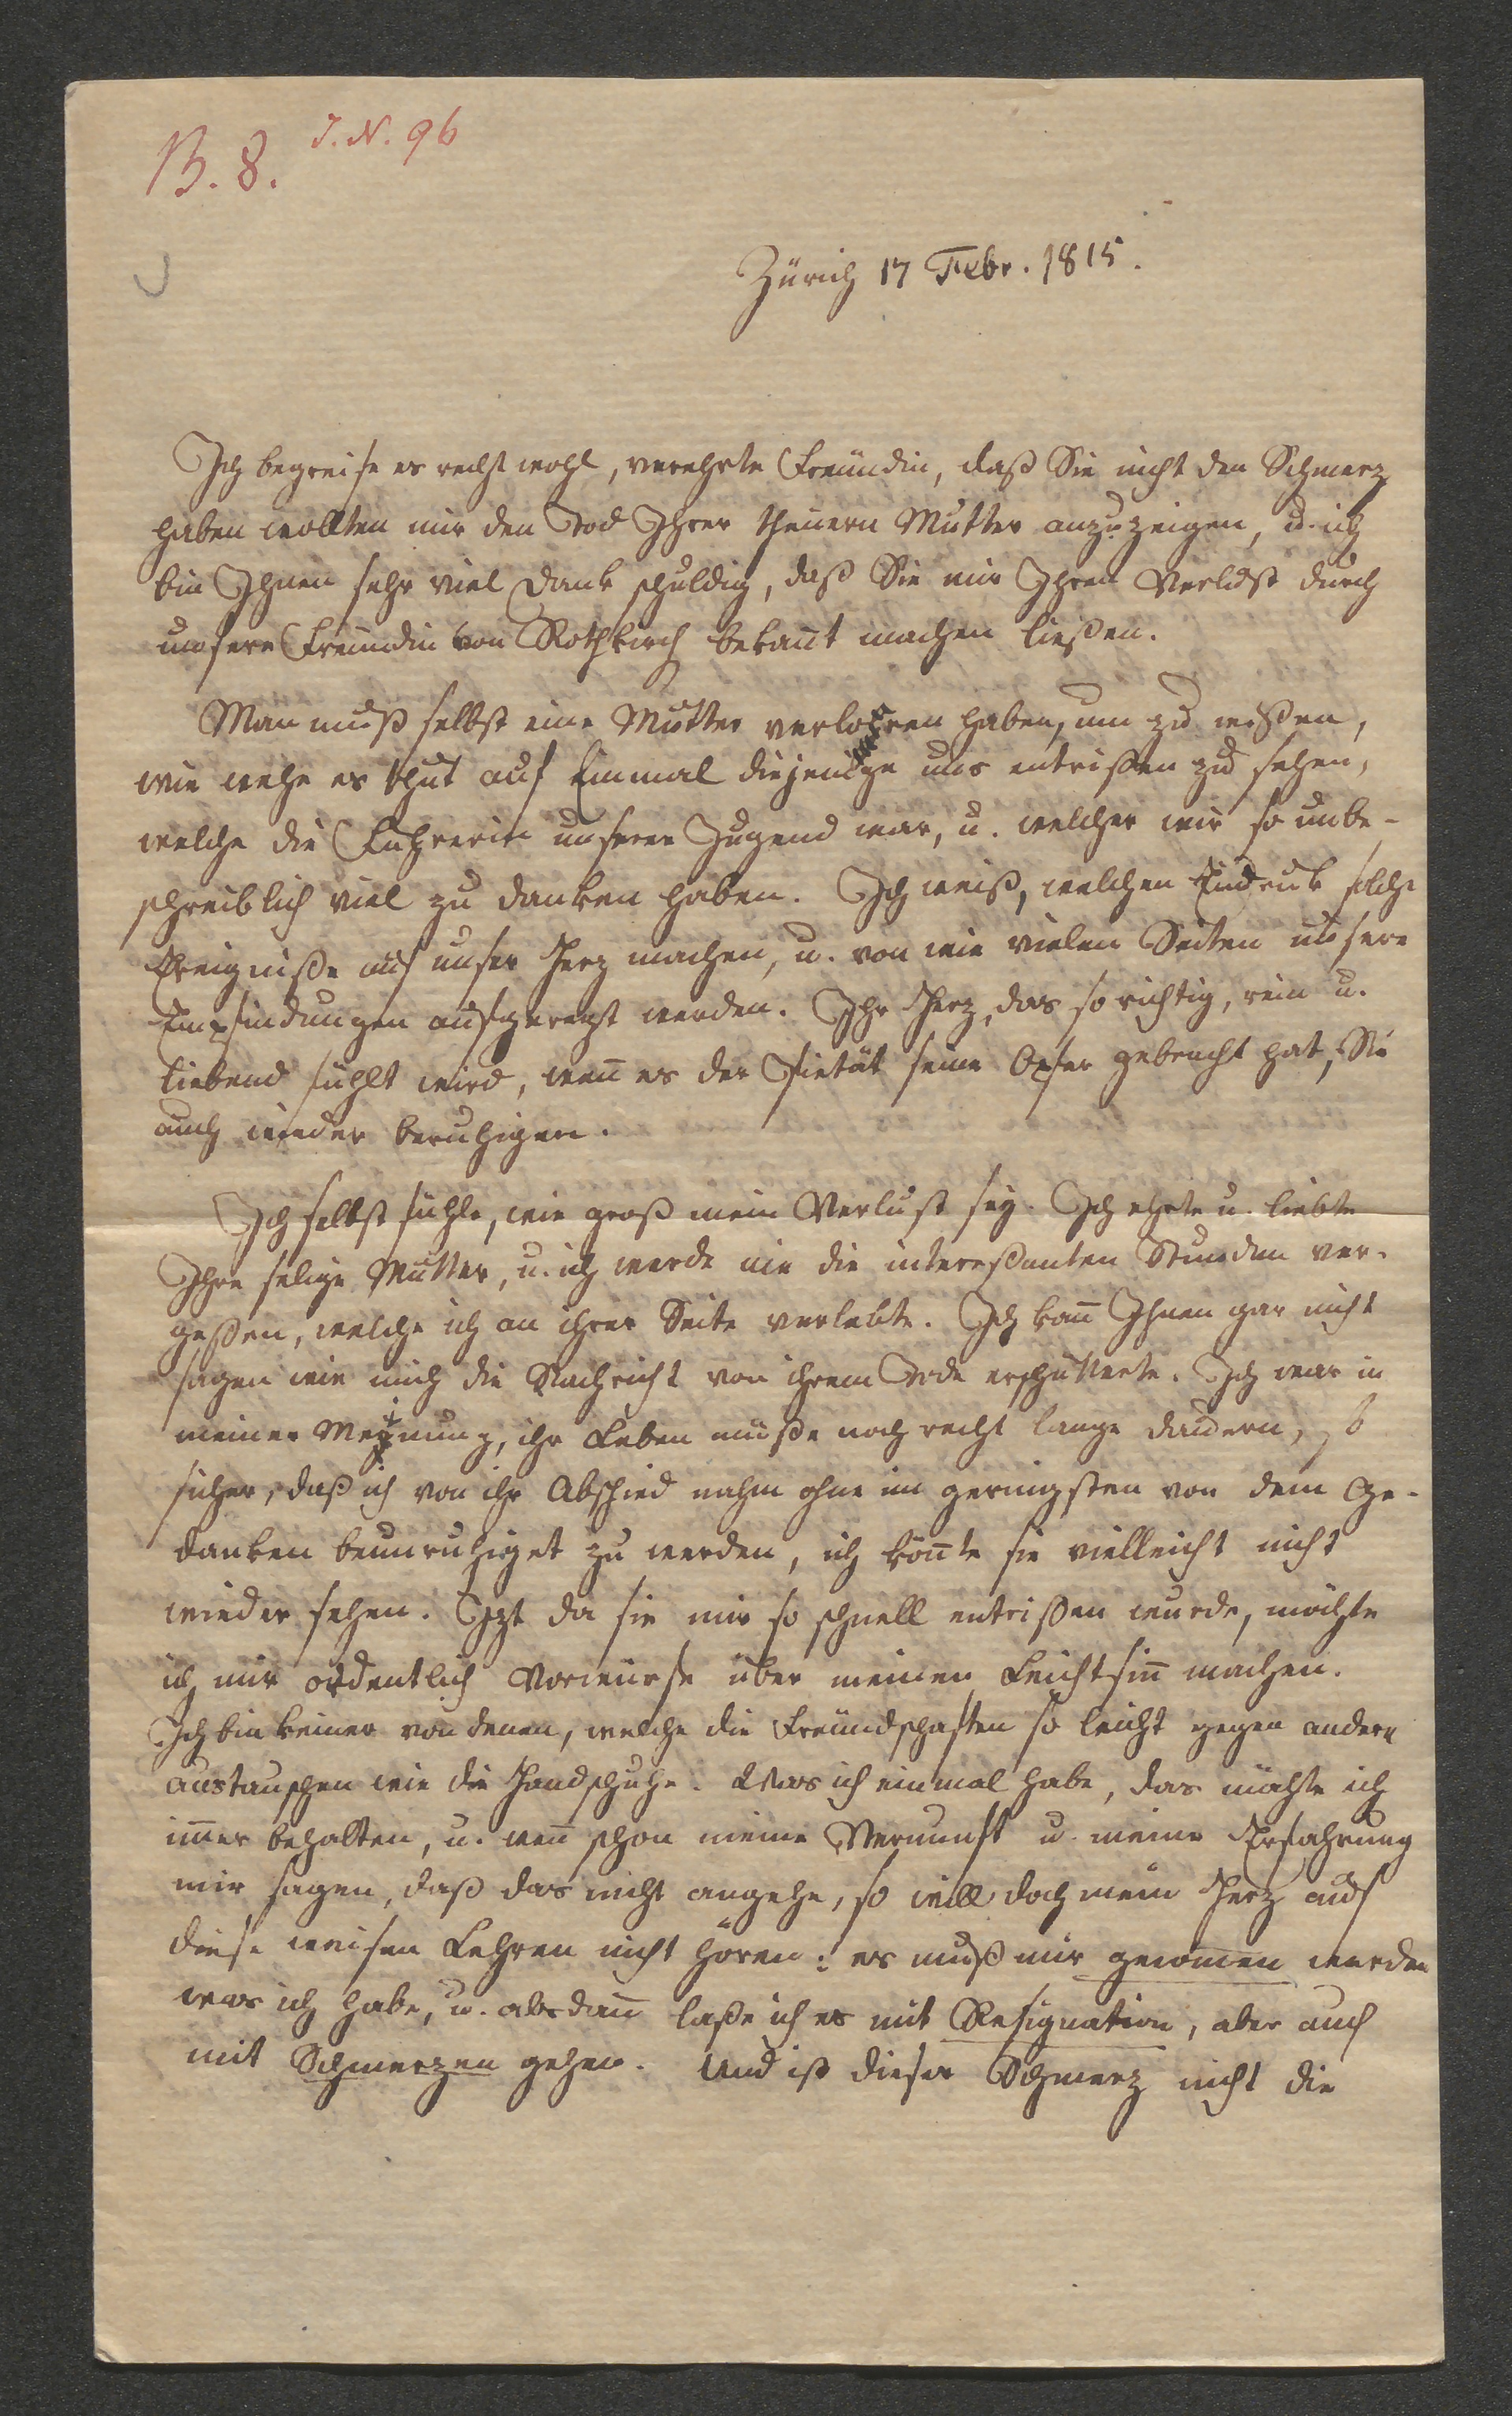 B. 8. J. N. 96
Zürich 17 Febr. 1815.
Ich begreife es recht wohl, verehrte Freündin, daß Sie nicht den Schmerz
haben wollten mir den Tod Ihrer theüern Mutter anzuzeigen, u. ich
bin Ihnen sehr viel Dank schuldig, daß Sie mir Ihren Verlust durch
unsere Freundin von Rothkirch bekañt machen ließen.
Man muß selbst eine Mutter verlohren haben, um zu wißen,
wie wehe es thut auf Einmal diejenige uns entrißen zu sehen,
welche die Führerin unserer Jugend war, u. welcher wir so unbe-
schreiblich viel zu danken haben. Ich weiß, welchen Eindruk solche
Ereigniße auf unser Herz machen, u. von wie vielen Seiten unsere
Empfindungen aufgeregt werden. Ihr Herz, das so richtig, rein u.
liebend fühlt wird, weñ es der Pietät seine Opfer gebracht hat, Sie
auch wieder beruhigen.
Ich selbst fühle, wie groß mein Verlust sey. Ich ehrte u. liebte
Ihre selige Mutter, u. ich werde nie die intereßanten Stunden ver-
geßen, welche ich an ihrer Seite verlebte. Ich kañ Ihnen gar nicht
sagen wie mich die Nachricht von ihrem Tode erschütterte. Ich war in
meiner Meinung, ihr Leben müße noch recht lange dauern, so
sicher, daß ich von ihr Abschied nahm ohne im geringsten von dem Ge-
danken beunruhiget zu werden, ich köñte sie vielleicht nicht
wieder sehen. Izt da sie mir so schnell entrißen wurde, möchte
ich mir ordentlich Vorwürfe über meinen Leichtsiñ machen.
Ich bin keiner von denen, welche die Freündschaften so leicht gegen andere
austauschen wie die Handschuhe. Was ich einmal habe, das möchte ich
im̃er behalten, u. weñ schon meine Vernunft u. meine Erfahrung
mir sagen, daß das nicht angehe, so will doch mein Herz auf
diese weisen Lehren nicht hören: es muß mir genom̃en werden
was ich habe, u. alsdañ laße ich es mit Resignation, aber auch
mit Schmerzen gehen. Und ist dieser Schmerz nicht die